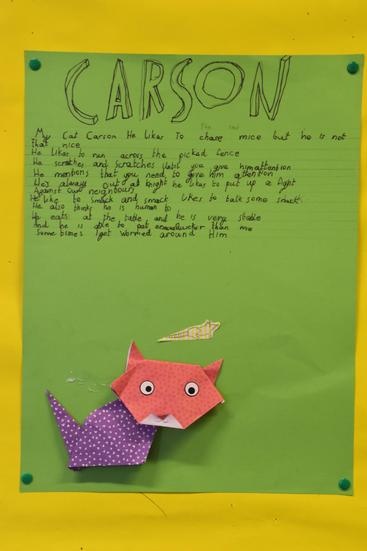 CARSON
My Cat Carson He likes to chase mice but he is not
that nice
He likes to run across the picked fence
He scratches and scratches until you give him attention
He mentions that you need to give him attention
He's always out at knight he likes to put up a fight
Against our neighbours
He like to smack and smack likes to talk some smack
He also thinks he is human to
He eats at the table and he is very stable
And he is able to pat than me
Some times I get worried around Him